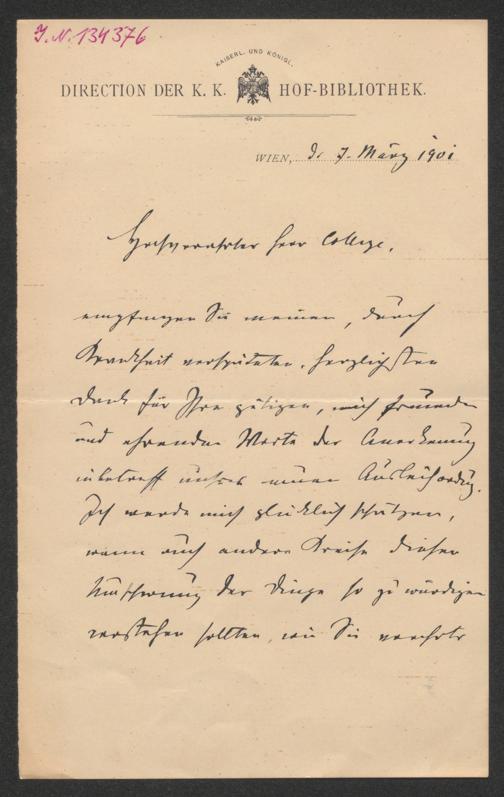 J. N. 134376
KAISERL. UND KÖNIGL.
DIRECTION DER K. K. HOF-BIBLIOTHEK.
WIEN, d. 7. März 1901
Hochverehrter Herr College,
empfangen Sie meinen, durch
Krankheit verspäteten, herzlichsten
Dank für Ihre gütigen, mich
und ehrenden Worte der Anerkennung
inbetreff neuen
Ich werde mich glücklich schätzen,
wenn auch andere Kreise diesen
Umschwung der Dinge so zu würdigen
verstehen sollten, wie Sie verehrter